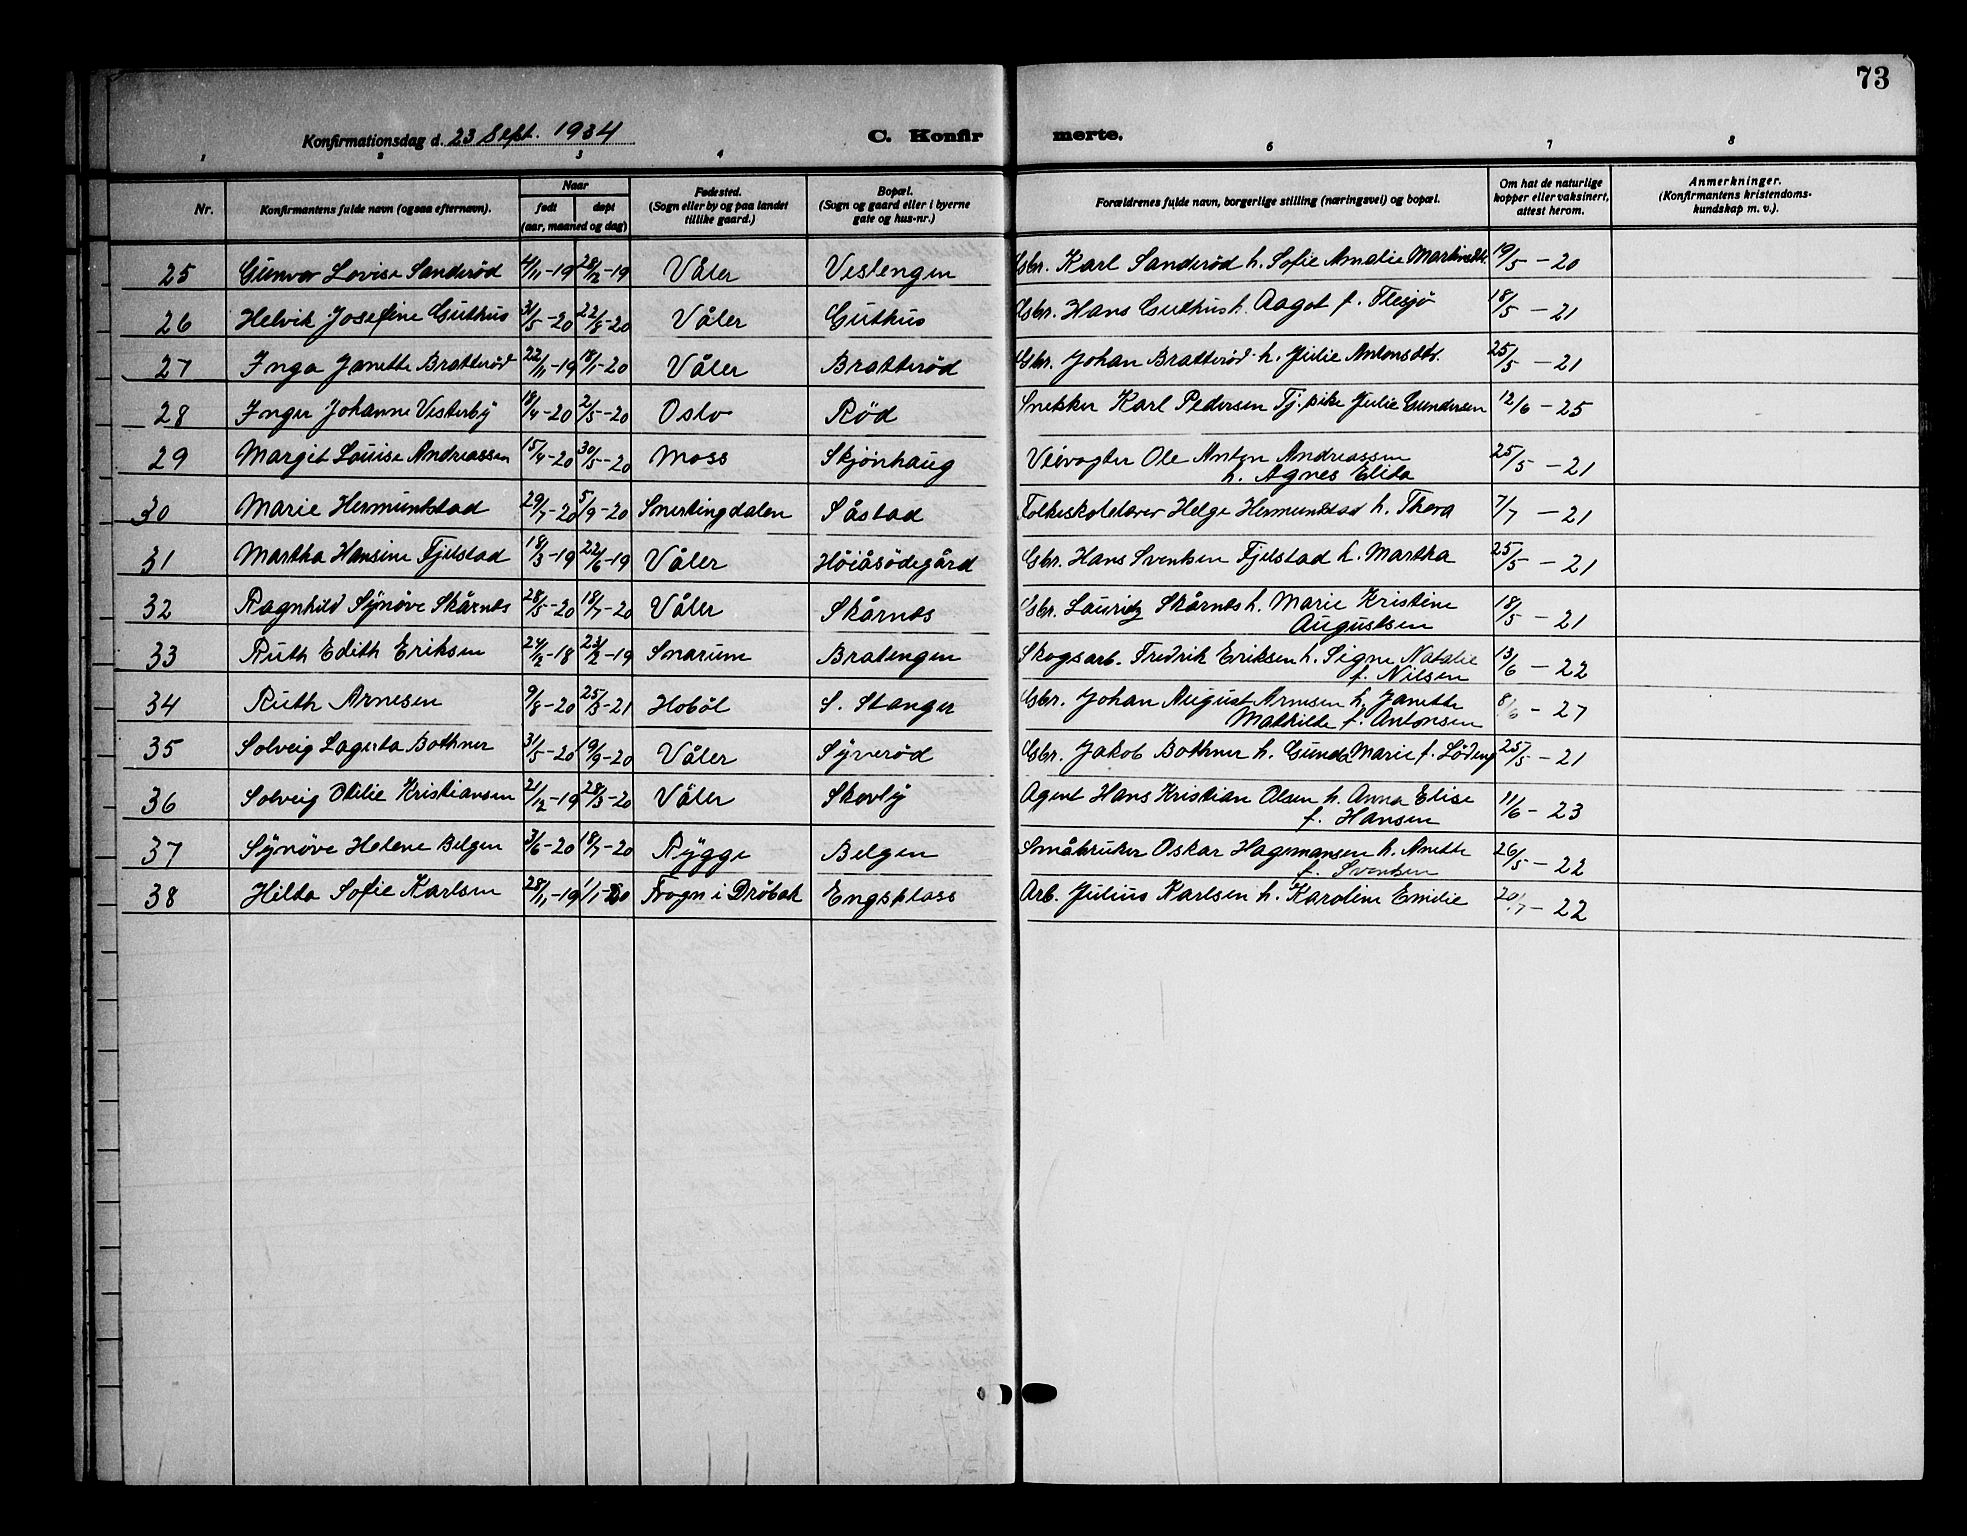 73
Konfirmationsdag d. 23 Sept. 1934
C. Konfirmerte.
1 2 3 4 6 7 8
Nr.
Konfirmantens fulde navn (ogsaa efternavn).
Naar
født
døpt
(aar, maaned og dag)
Fødested.
(Sogn eller by og paa landet
tillike gaard.)
Bopæl.
(Sogn og gaard eller i byerne
gate og hus-nr.)
Forældrenes fulde navn, borgerlige stilling (næringsvei) og bopæl.
Om hat de naturlige
kopper eller vaksinert,
attest herom.
Anmerkninger.
(Konfirmantens kristendoms-
kundskap m. v.).
25 Gunvor Lovise Sanderød 4/11-19 28/12-19 Våler Vestengen Gbr. Karl Sanderød h. Sofie Amalie Martinsdtr. 19/5-20
26 Helvik Josefine Guthus 31/5-20 22/8-20 Våler Guthus Gbr. Hans Guthus h. Aagot f. Flesjø 18/5-21
27 Inga Janette Bratterød 22/11-19 18/1-20 Våler Bratterød Gbr. Johan Bratterød h. Julie Antonsdtr. 25/5-21
28 Inger Johanne Vesterby 18/4-20 2/5-20 Oslo Rød Snekker Karl Pedersen Tj. pike Julie Gundersen 12/6-25
29 Margit Louise Andreassen 15/4-20 30/5-20 Moss Skjønhaug Veivogter Ole Anton Andreassen
h. Agnes Elida 25/5-21
30 Marie Hermundstad 29/7-20 5/9-20 Snertingdalen Såstad Folkeskolelærer Helge Hermundstad h. Thora 7/7-21
31 Martha Hansine Fjelstad 18/3-19 22/6-19 Våler Høiåsødegård Gbr. Hans Svensen Fjelstad h. Martha 25/5-21
32 Ragnhild Synøve Skårnes 28/5-20 18/7-20 Våler Skårnes Gbr. Lauritz Skårnes h. Marie Kristine
Augustsen 18/5-21
33 Ruth Edith Eriksen 24/12-18 23/2-19 Snarum Bratengen Skogsarb. Fredrik Eriksen h. Signe Natalie
f. Nilsen 13/6-22
34 Ruth Arnesen 9/8-20 25/3-21 Hobøl S. Stanger Gbr. Johan August Arnesen h. Janette
Mathilde f. Antonsen 8/6-27
35 Solveig Lagerta Bothner 31/5-20 19/9-20 Våler Syverød Gbr. Jakob Bothner h. Gunda Marie f. Løding 25/5-21
36 Solveig Otilie Kristiansen 21/12-19 28/3-20 Våler Skovly Agent Hans Kristian Olsen h. Anna Elise
f. Hansen 11/6-23
37 Synøve Helene Belgen 3/6-20 18/7-20 Rygge Belgen Småbruker Oskar Hagemansen h. Anette
f. Svensen 26/5-22
38 Hilda Sofie Karlsen 28/11-19 1/1-20 Frogn i Drøbak Engsplass Arb. Julius Karlsen h. Karoline Emilie 20/7-22